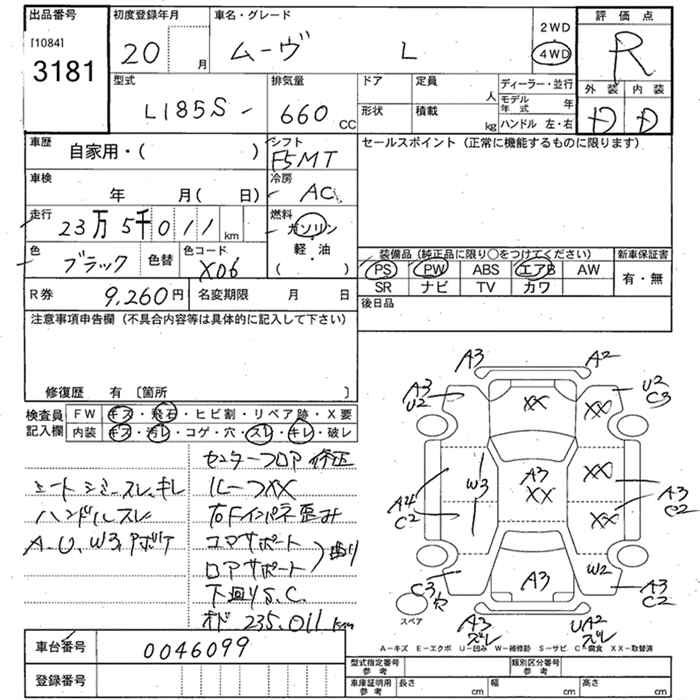 出品番号
[1084]
3181
初度登録年月
20
月
車名・グレード
ムーヴ L
2WD
4WD
評価点
R
型式
L185S-
排気量
660 CC
ドア
定員
人
形状
積載
kg
ディーラー・並行
モデル年式 年
ハンドル 左・右
外装 内装
D D
車歴
自家用・( )
シフト
F5MT
セールスポイント(正常に機能するものに限ります)
車検
年 月( 日)
冷房
AC
走行
23万5千011km
燃料
ガソリン
・
軽・油
( ・ )
色
ブラック
色替
色コード
X06
装備品(純正品に限り○をつけてください)
新車保証書
PS PW ABS エアB AW
有・無
SR ナビ TV カワ
R券
9,260円
名変期限 月 日
後日品
注意事項申告欄(不具合内容等は具体的に記入して下さい)
修復歴 有 [箇所 ]
検査員
記入欄
FW キズ・飛石・ヒビ割・リペア跡・X要
内装 キズ・汚レ・コゲ・穴・スレ・キレ・破レ
センターフロア修正
シートシミ、スレ、キレ
ルーフXX
ハンドルスレ
右Fインパネ歪み
A.U.W3,アポケ
コアサポート
ロアサポート
曲り
下廻りS.C.
235.011
A3 A2
A3
U2
XX
XX
U2
C3
A4
C2
W3
A3
XX
XX
XX
A3
C2
C3
A3
W2
A3
C2
スペア
A3
ズレ
UA2
ズレ
A-キズ E-エクボ U-凹み W-補修跡 S-サビ C-腐食 XX-取替済
車台番号
0046099
登録番号
型式指定番号
参考
類別区分番号
参考
車庫証明用
参考
長さ cm
幅 cm
高さ cm